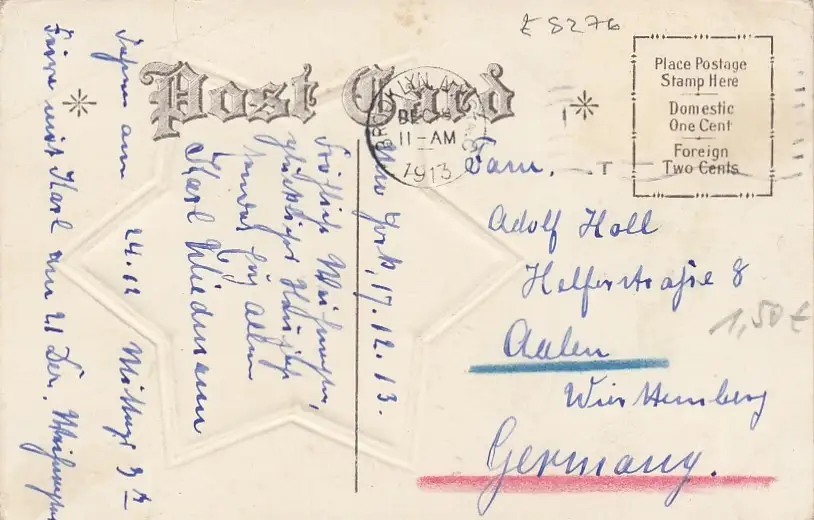 E 8276
Post Card
Place Postage
Stamp Here
Domestic
One Cent
Foreign
Two Cents
BROOKLYN
DEC
11-AM
1913
T
Fam.
Adolf Holl
Helferstraße 8
Aalen
Württemberg
Germany.
1,50 €
New York, 17.12.13.
Fröhliche Weihnachten,
glückliches Neujahr
sendet Euch allen
Karl Wiedmann
am 24.12 Mittags 3
Feire mit Karl am 21 Dez. Weihnachten